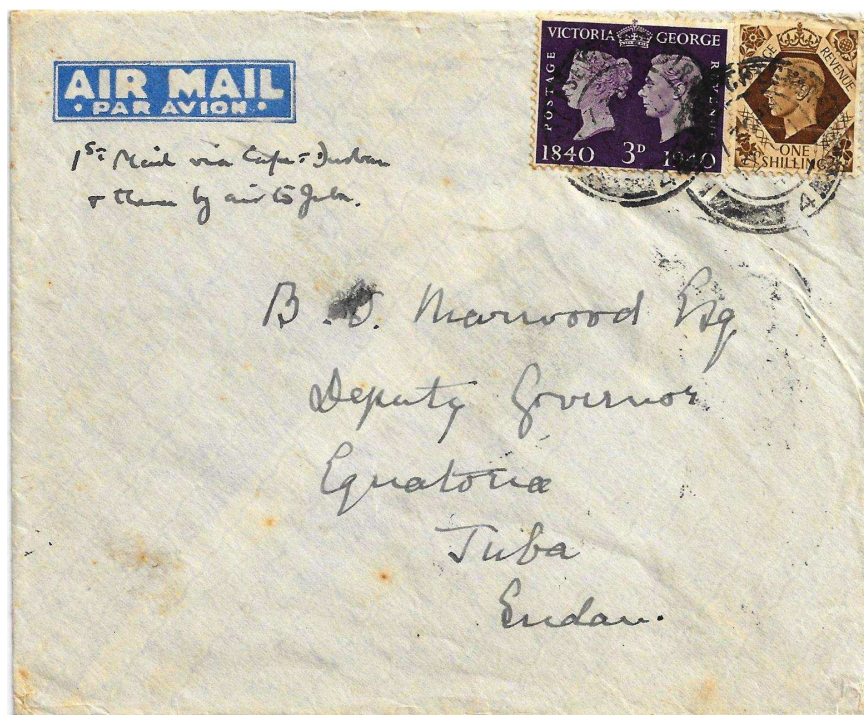 AIR MAIL
• PAR AVION •
1st Mail via Cape = Durban
+ thence by air to Juba.
VICTORIA GEORGE
POSTAGE REVENUE
1840 3D 1940
REVENUE
ONE
SHILLING
B. D. Marwood Esq
Deputy Governor
Equatoria
Juba
Sudan.